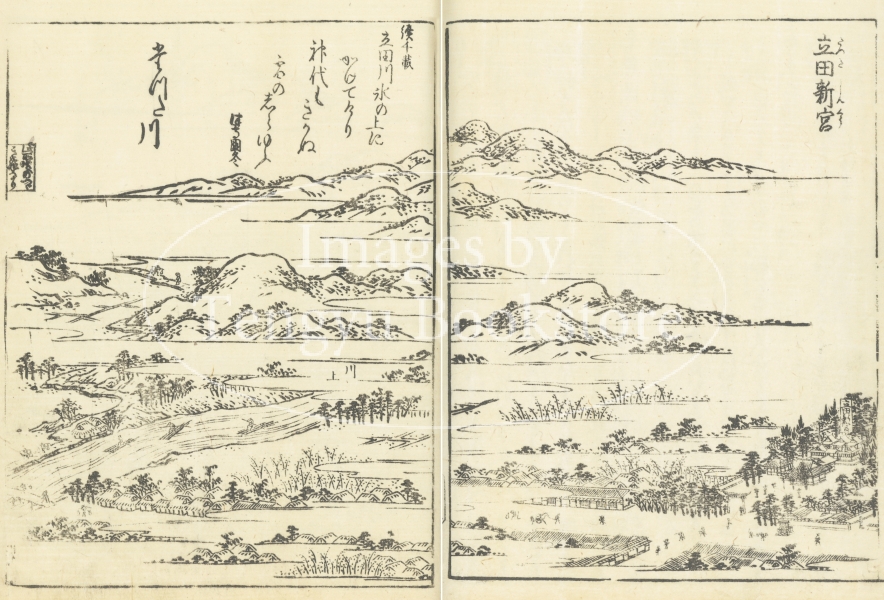 立田新宮
たつた しんぐう
続千載
立田川氷の上に
かけてけり
神代もきかぬ
雪のしらゆふ
たつた川
川上
Images by
Tengyu Bookstore